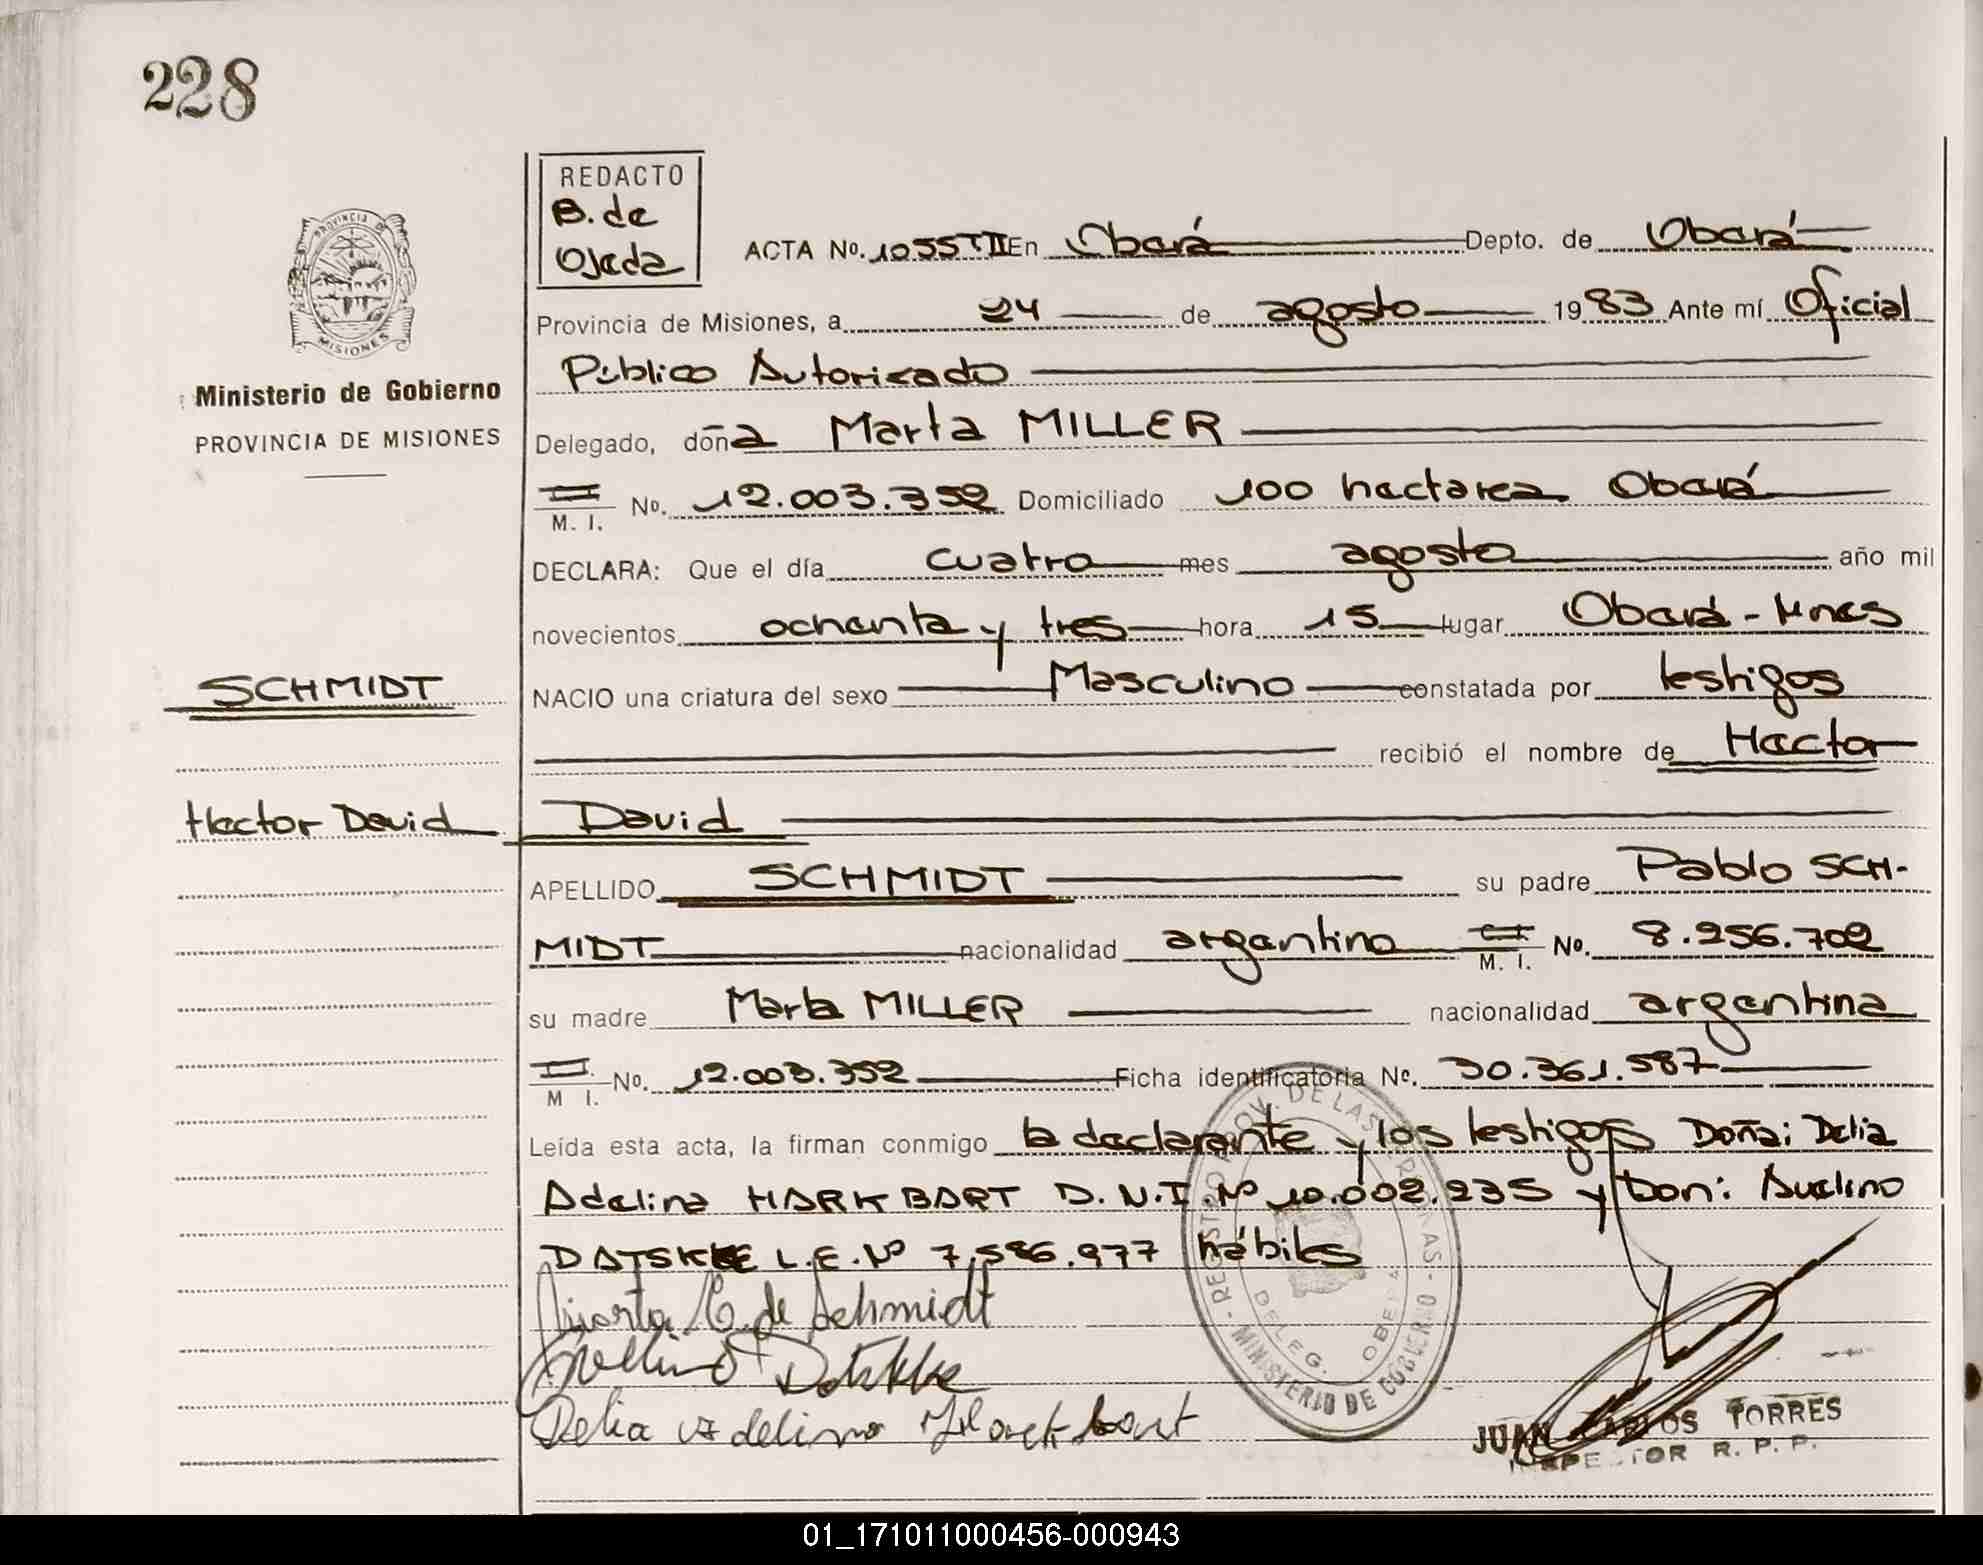 228
REDACTO
B. de
Ojeda
PROVINCIA DE
MISIONES
Ministerio de Gobierno
PROVINCIA DE MISIONES
ACTA No. 1055 T II En Oberá Depto. de Oberá
Provincia de Misiones, a 24 de agosto 1983 Ante mí Oficial
Público Autorizado
Delegado, doña Marta MILLER
M. I. No. 12.003.352 Domiciliado 100 hectarea Oberá
DECLARA: Que el día cuatro mes agosto año mil
novecientos ochenta y tres hora 15 lugar Oberá - Mnes
SCHMIDT
NACIO una criatura del sexo Masculino constatada por testigos
recibió el nombre de Hector
Hector David
David
APELLIDO SCHMIDT su padre Pablo SCH-
MIDT nacionalidad argentino M. I. No. 8.256.702
su madre Marta MILLER nacionalidad argentina
M I. No. 12.003.352 Ficha identificatoria No. 30.361.587
Leída esta acta, la firman conmigo la declarante y los testigos Doña: Delia
Adelina HARKBART D.N.I Nº 10.002.235 y Don: Avelino
DATSKKE L.E. Nº 7.586.977 hábiles
Marta M. de Schmidt
Avellino Datskke
Delia Adelina Harkbart
REGISTRO PROV. DE LAS PERSONAS - MINISTERIO DE GOBIERNO
DELEG. OBERA
JUAN CARLOS TORRES
INSPECTOR R. P. P.
01_171011000456-000943